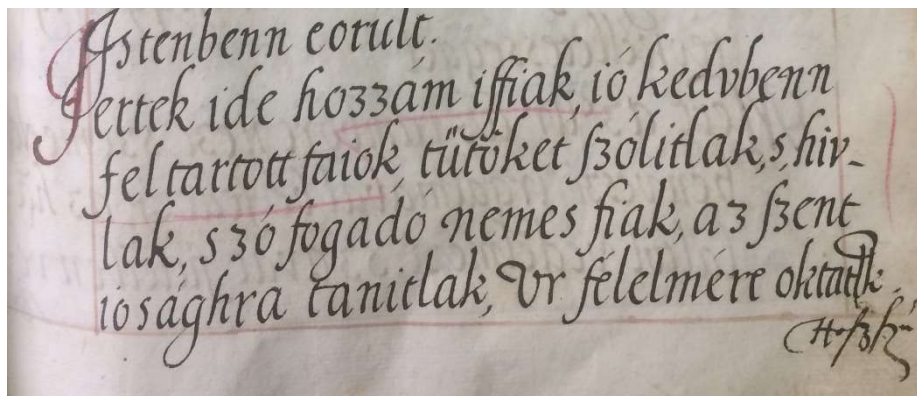 Istenbenn eorult.
Iertek ide hozzám iffiak, ió kedvbenn
fel tartott faiok, tűtöket szólitlak, s, hiv-
lak, szó fogadó nemes fiak, az szent
iosághra tanitlak, Vr félelmére oktatlk.